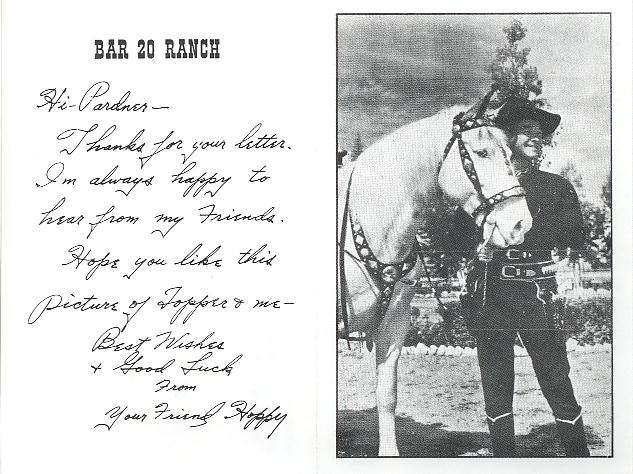 BAR 20 RANCH
Hi-Pardner—
Thanks for your letter.
I'm always happy to
hear from my Friends.
Hope you like this
picture of Topper & me—
Best Wishes
& Good Luck
From
Your Friend Hoppy